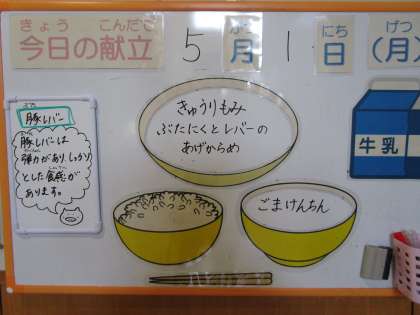 きょう こんだて
今日の献立 5 がつ 月 1 にち 日 げつ (月)
ぶた
豚レバー
豚レバーは
弾力があり、しっかり
とした食感が
あります。
きゅうりもみ
ぶたにくとレバーの
あげからめ
ごまけんちん
牛乳